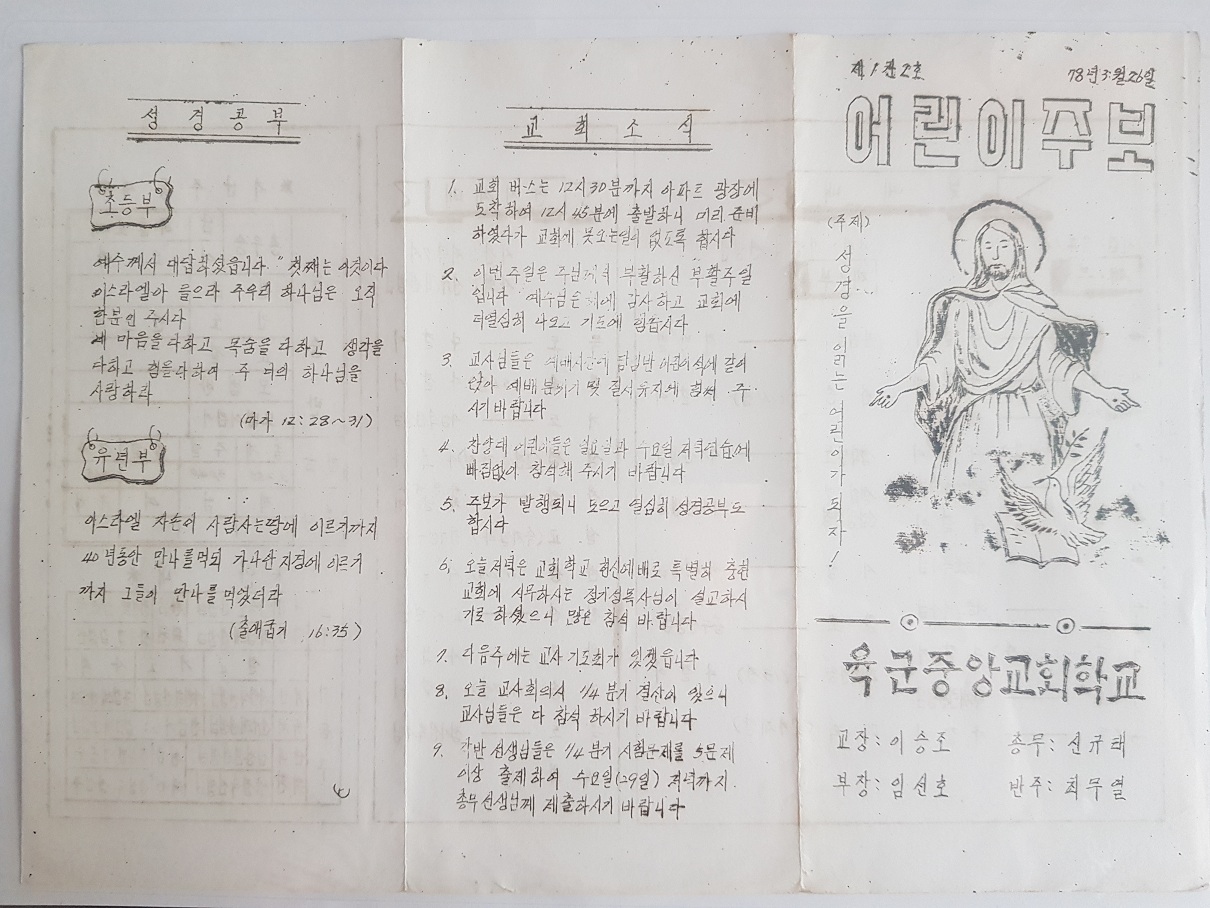 성경공부
초등부
예수께서 대답하셨읍니다. "첫째는 이것이다
이스라엘아 들으라 주우리 하나님은 오직
한분인 주시다
네 마음을 다하고 목숨을 다하고 생각을
다하고 힘을다하여 주 너의 하나님을
사랑하라
(마가 12:28~31)
유년부
이스라엘 자손이 사람사는땅에 이르기까지
40년동안 만나를먹되 가나안지경에 이르기
까지 그들이 만나를먹었더라
(출애굽기 16:35)
교회소식
1. 교회 버스는 12시30분까지 아파트 광장에
도착하여 12시 45분에 출발하니 미리 준비
하였다가 교회에 못오는일이 없도록 합시다
2. 이번주일은 주님께서 부활하신 부활주일
입니다 예수님은혜에 감사하고 교회에
더열심히 나오고 기도에 힘씁시다
3. 교사님들은 예배시간에 담임반 어린이석에 같이
앉아 예배분위기 및 질서유지에 힘써 주
시기바랍니다
4. 찬양대 어린이들은 월요일과 수요일 저녁연습에
빠짐없이 참석해 주시기 바랍니다
5. 주보가 발행되니 모으고 열심히 성경공부도
합시다
6. 오늘저녁은 교회학교 헌신예배로 특별히 충현
교회에 시무하시는 목사님이 설교하시
기로 하셨으니 많은 참석 바랍니다
7. 다음주에는 교사기도회가 있겠읍니다
8. 오늘 교사회의시 1/4분기 결산이 있으니
교사님들은 다 참석 하시기 바랍니다
9. 각반 선생님들은 1/4분기 시험문제를 5문제
이상 출제하여 수요일(29일) 저녁까지
총무선생님께 제출하시기 바랍니다
제1권2호
78년3월26일
어린이주보
(주제) 성경을 읽는 어린이가 되자!
육군중앙교회학교
교장: 이승조 총무: 신규태
부장: 임선호 반주: 최무열